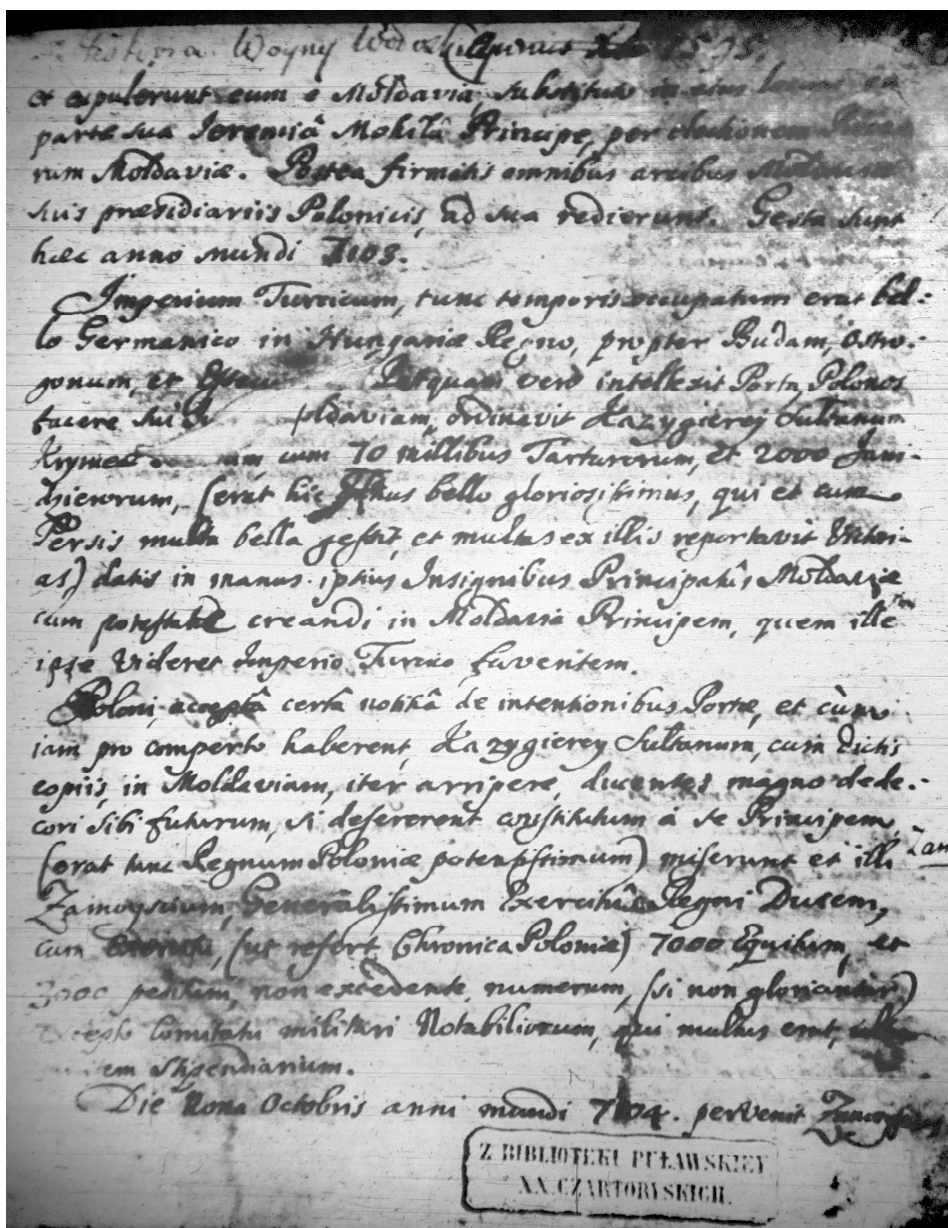 Historia Woyny Woło 1595.
et expulerunt eum e Moldavia, substituto in eius locum ex
parte sua Ieremiâ Mohilâ Principe, per electionem
rum Moldaviæ. Postea firmatis omnibus arcibus
suis præsidiariis Polonicis, ad sua redierunt. Gesta sunt
hæc anno mundi 7103.
Imperium Turcicum, tunc temporis occupatum erat bel-
lo Germanico in Hungariæ Regno, propter Budam, Ostro-
gonum, et Postquam vero intellexit Porta, Polonos
facere sui oldaviam, ordinavit Kazygierej Sultanum
um cum 70 millibus Tartarorum, et 2000 Jani-
hierorum, (erat hic bello gloriosissimus, qui et cum
Persis multa bella gessit, et multas ex illis reportavit Victori-
as) datis in manus ipsius Insignibus Principatûs Moldaviæ
cum potestate creandi in Moldavia Principem, quem ille
ipse Videret Imperio Turcico faventem.
Poloni, acceptâ certa notitiâ de intentionibus Portæ, et cùm
iam pro comperto haberent, Kazygierey Sultanum, cum dictis
copiis, in Moldaviam, iter arripere, ducentes magno dede-
cori sibi futurum, si desererent constitutum à se Principem,
(erat tunc Regnum Poloniæ potentissimum) miserunt et illi Zam
Zamoyscium, Generalissimum Exercitûs Regni Ducem,
cum (ut refert Chronica Poloniæ) 7000 Equitum, et
3000 peditum, non excedente numerum, (si non gloriantur)
Comitatu militari Notabiliorum, qui multus erat,
em Stipendiarium.
Die Nona Octobris anni mundi 7104. pervenit
Z BIBLIOTEKI PUŁAWSKIEY
XX. CZARTORYSKICH.